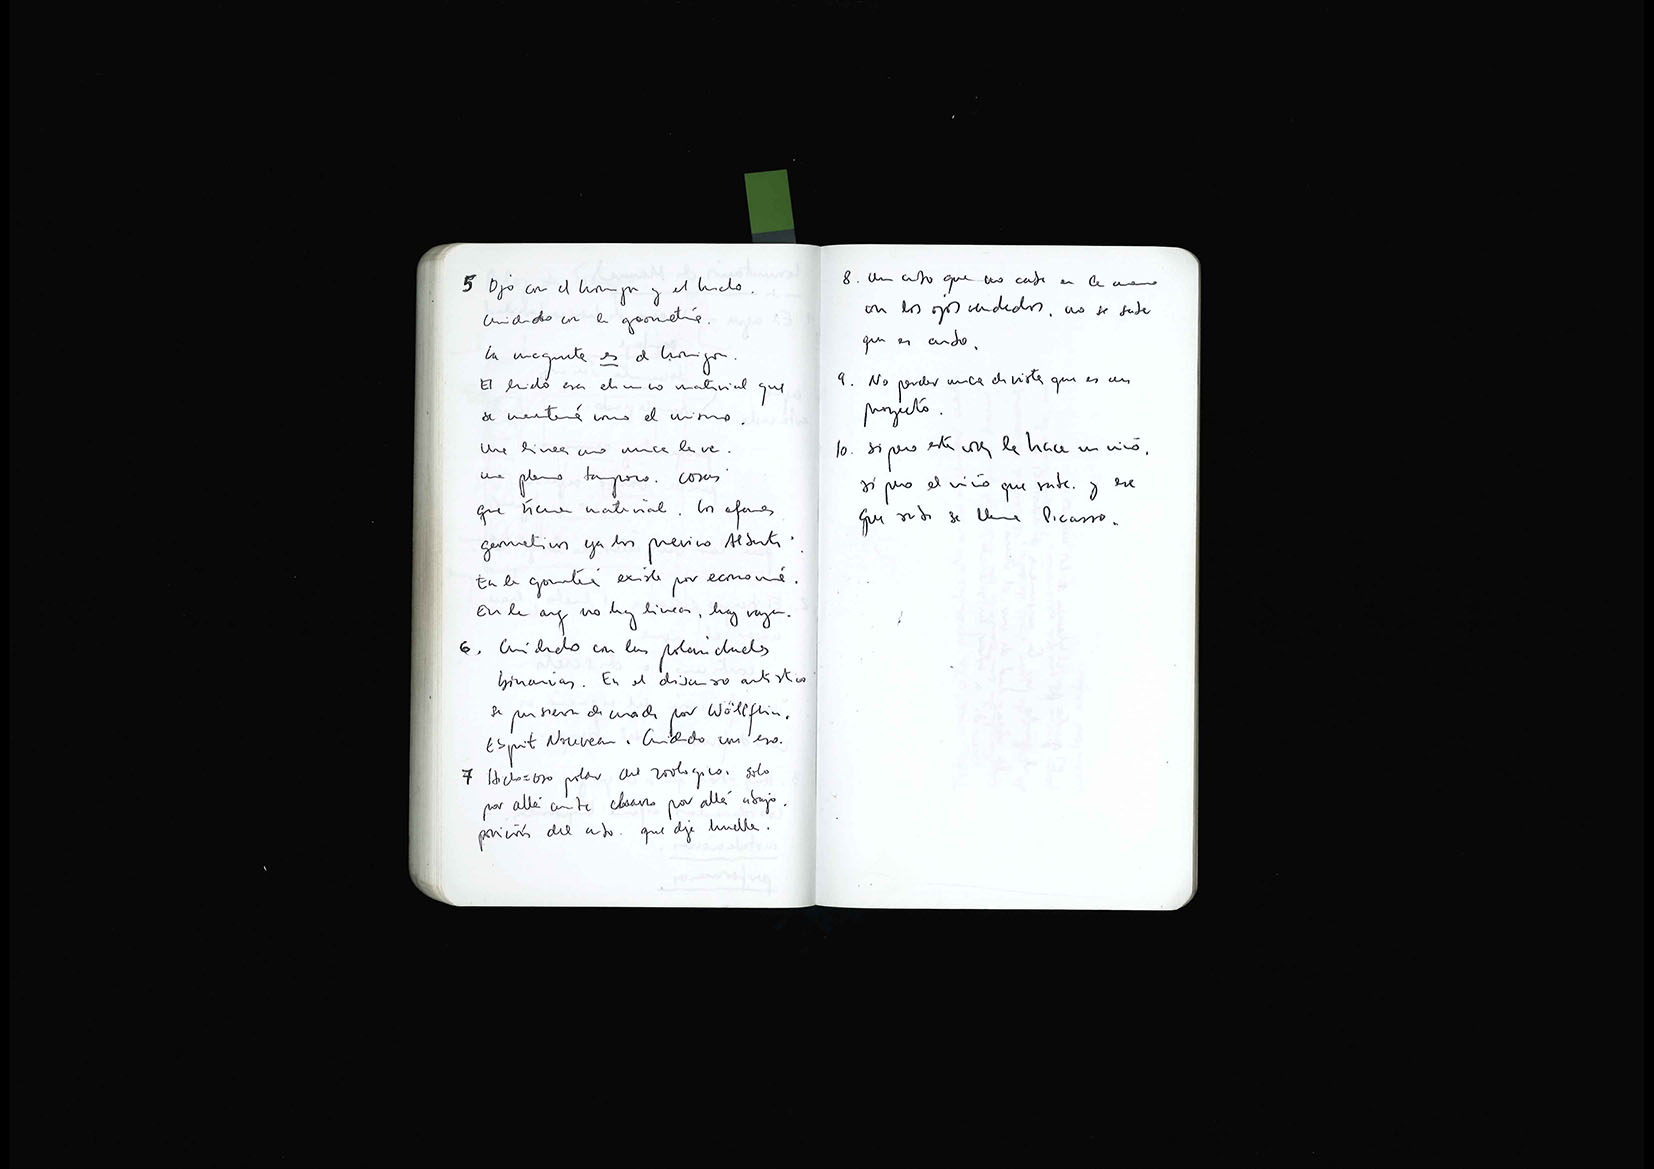 5 Ojo con el hormigon y el hielo.
Cuidado con la geometría.
La maqueta es el hormigon.
El hielo era el unico material que
se mantenía como el mismo.
Una linea no nunca la ve.
un plano tampoco. cosas
que tienen material. Los afanes
geometricos ya los previno Alberti.
En la geometría existe por economía.
En la arq no hay lineas, hay rayas.
6. Cuidado con las polaridades
binarias. En el discurso artistico
se pusieron de moda por Wölfflin.
Esprit Nouveau. Cuidado con eso.
7 polar del zoologico. solo
por allá arriba por allá abajo.
posición del cubo. que deje huella.
8. Un cubo que no cabe en la mano
con los ojos vendados, no se sabe
que es cubo.
9. No perder nunca de vista que es un
proyecto.
10. si pero esta cosa la hace un niño.
si pero el niño que sabe. y ese
que sabe se llama Picasso.